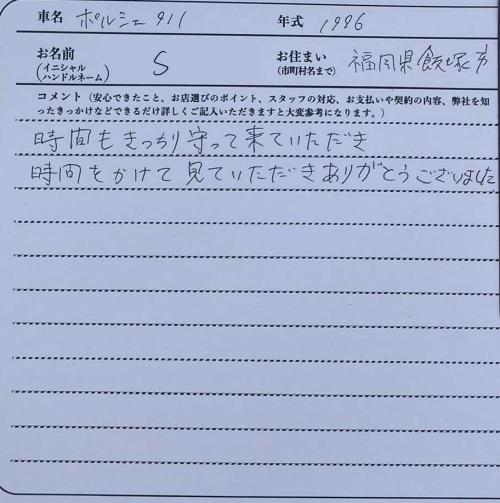 車名 ポルシェ911 年式 1996
お名前 (イニシャル ハンドルネーム) S お住まい (市町村名まで) 福岡県飯塚市
コメント(安心できたこと、お店選びのポイント、スタッフの対応、お支払いや契約の内容、弊社を知
ったきっかけなどできるだけ詳しくご記入いただきますと大変参考になります。)
時間もきっちり守って来ていただき
時間をかけて見ていただきありがとうございました